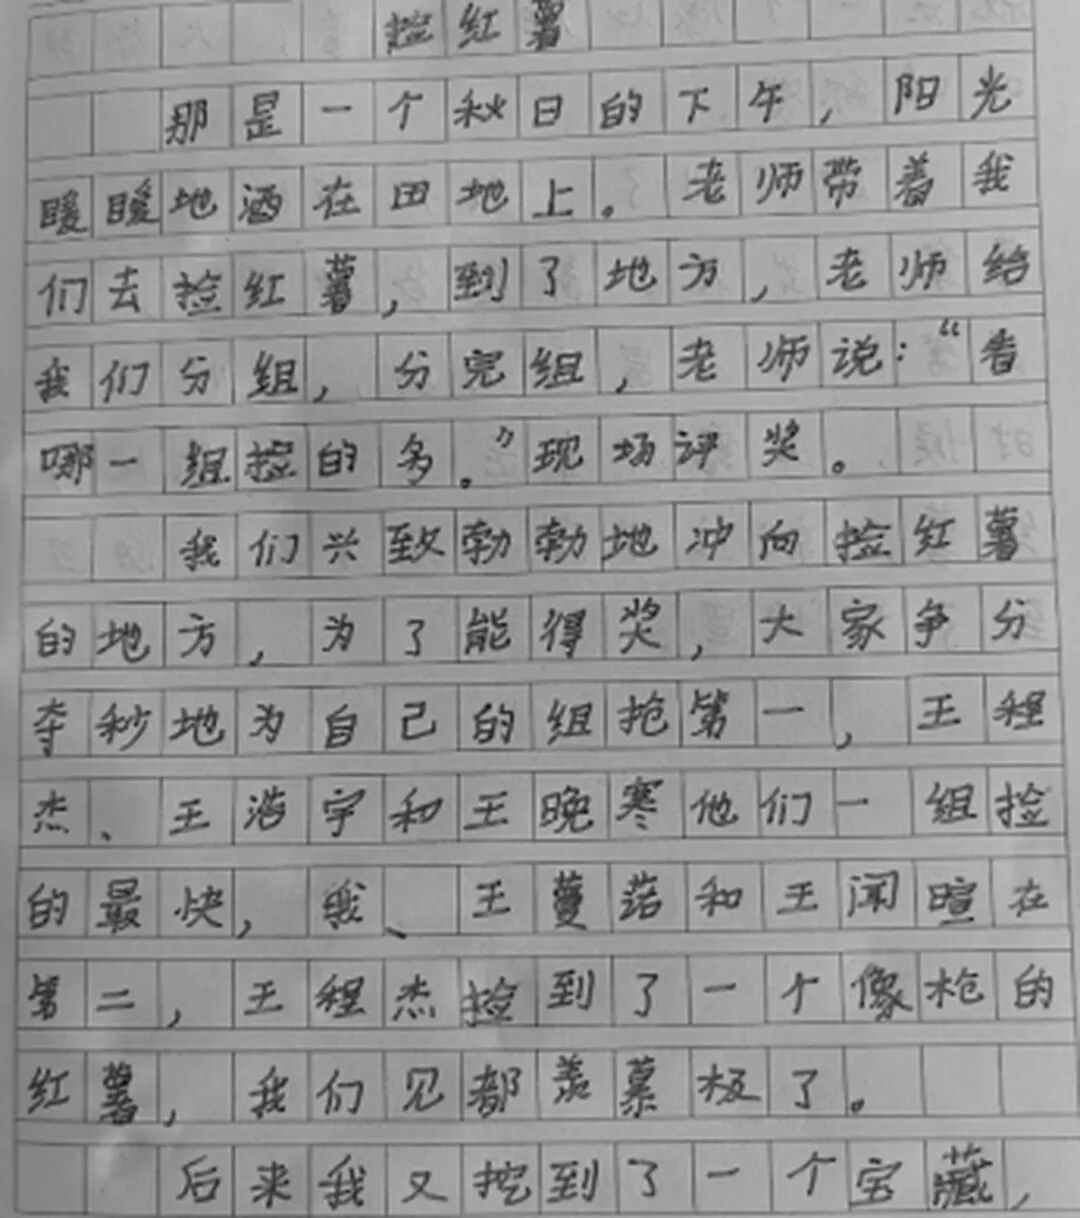 捡红薯
那是一个秋日的下午，阳光
暖暖地洒在田地上。老师带着我
们去捡红薯，到了地方，老师给
我们分组，分完组，老师说：“看
哪一组捡的多。”现场评奖。
我们兴致勃勃地冲向捡红薯
的地方，为了能得奖，大家争分
夺秒地为自己的组抢第一，王程
杰、王浩宇和王晚寒他们一组捡
的最快，我、王蔓诺和王闻暄在
第二，王程杰捡到了一个像枪的
红薯，我们见都羡慕极了。
后来我又挖到了一个宝藏，